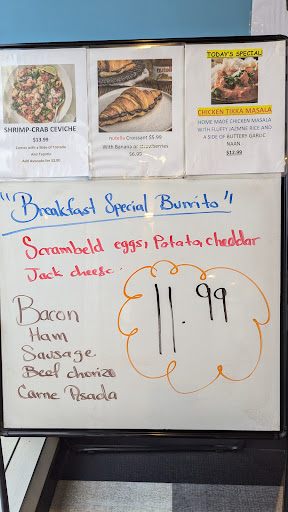 SHRIMP-CRAB CEVICHE
$13.99
Comes with a Side of Tostada
And Tapatio
Add Avocado for $2.00
nutella Croissant $5.99
With Banana or Strawberries
$6.99
TODAY'S SPECIAL!
CHICKEN TIKKA MASALA
HOME MADE CHICKEN MASALA
WITH FLUFFY JAZMINE RICE AND
A SIDE OF BUTTERY GARLIC
NAAN
$12.99
"Breakfast Special Burrito"
Scrambeld eggs, Potato, cheddar
Jack cheese.
11.99
Bacon
Ham
Sausage
Beef chorizo
Carne Asada